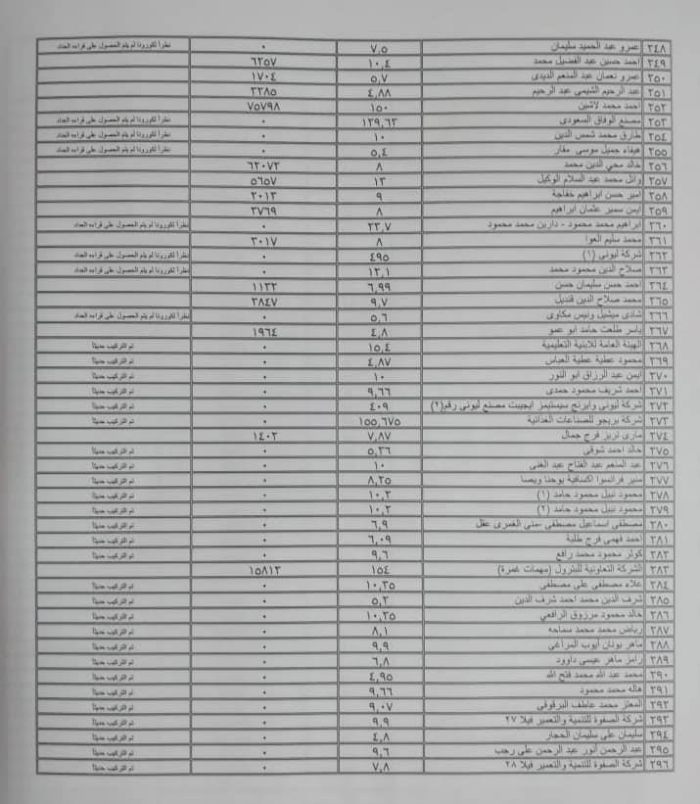 ٢٤٨ عمرو عبد الحميد سليمان ٧,٥ ٠ نظراً لكورونا لم يتم الحصول على قراءه العداد
٢٤٩ احمد حسين عبد الفضيل محمد ١٠,٤ ٦٢٥٧
٢٥٠ عمرو نعمان عبد المنعم الديدى ٥,٧ ١٧٠٤
٢٥١ عبد الرحيم الشيمي عبد الرحيم ٤,٨٨ ٣٣٨٥
٢٥٢ احمد محمد لاشين ١٥٠ ٧٥٧٩٨
٢٥٣ مصنع الوفاق السعودى ١٢٩,٦٣ ٠ نظراً لكورونا لم يتم الحصول على قراءه العداد
٢٥٤ طارق محمد شمس الدين ١٠ ٠ نظراً لكورونا لم يتم الحصول على قراءه العداد
٢٥٥ هيفاء جميل موسى مقار ٥,٤ ٠ نظراً لكورونا لم يتم الحصول على قراءه العداد
٢٥٦ خالد محي الدين محمد ٨ ٦٢٠٧٢
٢٥٧ وائل محمد عبد السلام الوكيل ١٣ ٥٦٥٧
٢٥٨ امير حسن ابراهيم خفاجة ٩ ٢٠١٣
٢٥٩ ايمن سمير عثمان ابراهيم ٨ ٣٧٦٩
٢٦٠ ابراهيم محمد محمود - دارين محمد محمود ٢٣,٧ ٠ نظراً لكورونا لم يتم الحصول على قراءه العداد
٢٦١ محمد سليم العوا ٨ ٣٠١٧
٢٦٢ شركة ليونى (١) ٤٩٥ ٠ نظراً لكورونا لم يتم الحصول على قراءه العداد
٢٦٣ صلاح الدين محمود محمد ١٣,١ ٠ نظراً لكورونا لم يتم الحصول على قراءه العداد
٢٦٤ احمد حسن سليمان حسن ٦,٩٩ ١١٣٢
٢٦٥ محمد صلاح الدين قنديل ٩,٧ ٣٨٤٧
٢٦٦ شادى ميشيل ونيس مكاوى ٥,٦ ٠ نظراً لكورونا لم يتم الحصول على قراءه العداد
٢٦٧ ياسر طلعت حامد ابو عمو ٤,٨ ١٩٦٤
٢٦٨ الهيئة العامة للابنية التعليمية ١٥,٤ ٠ تم التركيب حديثاً
٢٦٩ محمود عطية عطية العباس ٤,٨٧ ٠ تم التركيب حديثاً
٢٧٠ ايمن عبد الرزاق ابو النور ١٠ ٠ تم التركيب حديثاً
٢٧١ احمد شريف محمود حمدى ٩,٦٦ ٠ تم التركيب حديثاً
٢٧٢ شركة ليونى وايرنج سيستيمز ايجيبت مصنع ليونى رقم(٢) ٤٠٩ ٠ تم التركيب حديثاً
٢٧٣ شركة بريجو للصناعات الغذائية ١٥٥,٦٧٥ ٠ تم التركيب حديثاً
٢٧٤ مارى تريز فرج جمال ٧,٨٧ ١٤٠٢
٢٧٥ خالد احمد شوقى ٥,٣٦ ٠ تم التركيب حديثاً
٢٧٦ عبد المنعم عبد الفتاح عبد الغنى ١٠ ٠ تم التركيب حديثاً
٢٧٧ منير فرانسوا اكسافية يوحنا ويصا ٨,٢٥ ٠ تم التركيب حديثاً
٢٧٨ محمود نبيل محمود حامد (١) ١٠,٢ ٠ تم التركيب حديثاً
٢٧٩ محمود نبيل محمود حامد (٢) ١٠,٢ ٠ تم التركيب حديثاً
٢٨٠ مصطفى اسماعيل مصطفى -منى الغمرى عقل ٦,٩ ٠ تم التركيب حديثاً
٢٨١ احمد فهمى فرج طلبة ٦,٠٩ ٠ تم التركيب حديثاً
٢٨٢ كوثر محمود محمد رافع ٩,٦ ٠ تم التركيب حديثاً
٢٨٣ الشركة التعاونية للبترول (مهمات غمرة) ١٥٤ ١٥٨١٣
٢٨٤ علاء مصطفى على مصطفى ١٠,٢٥ ٠ تم التركيب حديثاً
٢٨٥ شرف الدين محمد احمد شرف الدين ٥,٢ ٠ تم التركيب حديثاً
٢٨٦ خالد محمود مرزوق الرافعي ١٠,٢٥ ٠ تم التركيب حديثاً
٢٨٧ رياض محمد محمد سماحه ٨,١ ٠ تم التركيب حديثاً
٢٨٨ ماهر يونان أيوب المراغى ٩,٩ ٠ تم التركيب حديثاً
٢٨٩ رامز ماهر عيسى داوود ٦,٨ ٠ تم التركيب حديثاً
٢٩٠ محمد عبد الله محمد فتح الله ٤,٩٥ ٠ تم التركيب حديثاً
٢٩١ هاله محمد محمود ٩,٦٦ ٠ تم التركيب حديثاً
٢٩٢ المعتز محمد عاطف البرقوقي ٩,٠٧ ٠ تم التركيب حديثاً
٢٩٣ شركة الصفوة للتنمية والتعمير فيلا ٢٧ ٩,٩ ٠ تم التركيب حديثاً
٢٩٤ سليمان على سليمان الحجار ٤,٨ ٠ تم التركيب حديثاً
٢٩٥ عبد الرحمن أنور عبد الرحمن على رجب ٩,٦ ٠ تم التركيب حديثاً
٢٩٦ شركة الصفوة للتنمية والتعمير فيلا ٢٨ ٧,٨ ٠ تم التركيب حديثاً